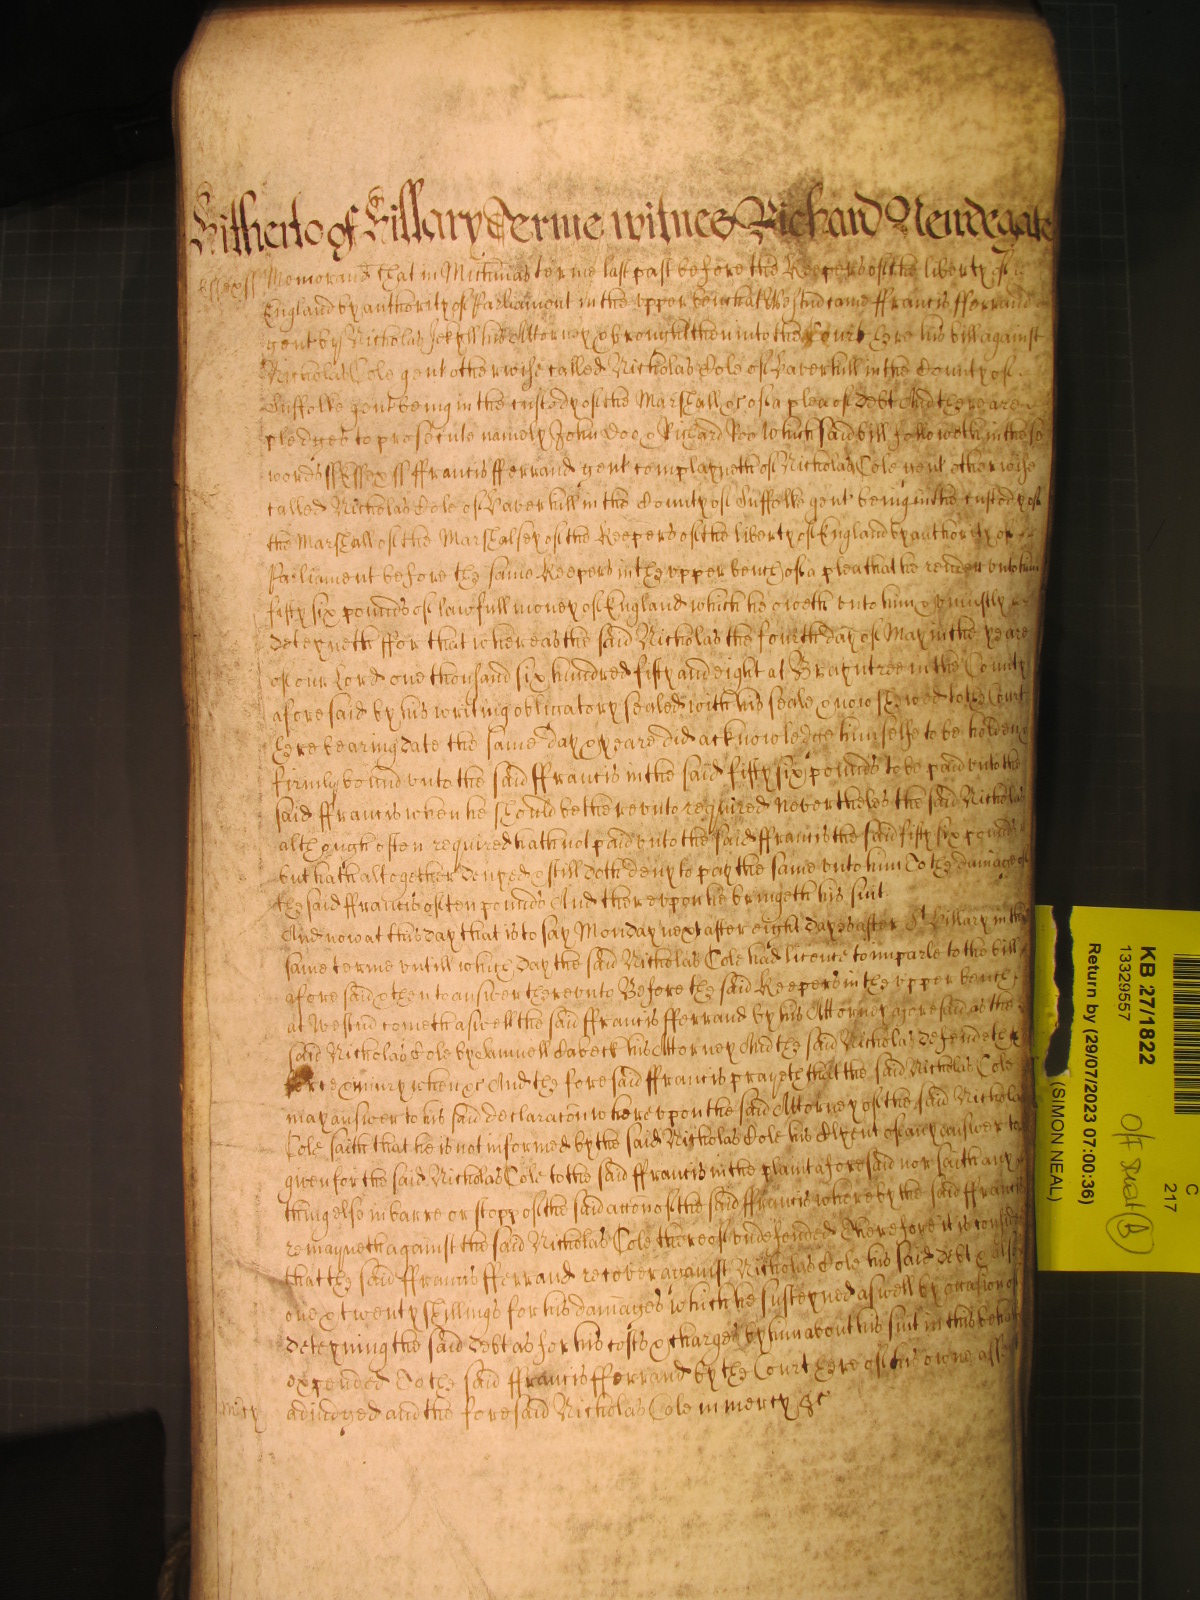 Hitherto of Hillary Terme witnes Richard Newdegate
Essex ss Memorand that in Michmas terme last past before the Keepers of the liberty of
England by authority of Parliament in the upper bench at Westmr came ffrancis fferrand
gent by Nicholas Jekyll his Attorney & brought then into the Court here his bill against
Nicholas Cole gent otherwise called Nicholas Cole of Haverhill in the County of
Suffolke gent being in the custody of the Marshall &c of a plea of debt And there are
pledges to prosecute namely John Doo & Richard Roo which said bill followeth in these
words ss Essex ss ffrancis fferrand gent complayneth of Nicholas Cole gent otherwise
called Nicholas Cole of Haverhill in the County of Suffolke gent being in the custody of
the Marshall of the Marshalsey of the Keepers of the liberty of England by authority of
Parliament before the same Keepers in the upper bench of a plea that he render unto him
fifty six pounds of lawfull money of England which he oweth unto him & uniustly
deteyneth ffor that whereas the said Nicholas the fourth day of May in the yeare
of our Lord one thousand six hundred fifty and eight at Brayntree in the County
aforesaid by his writing obligatory sealed with his seale & now shewed to the Court
here bearing date the same day & yeare did acknowledge himselfe to be holden &
firmly bound unto the said ffrancis in the said fifty six pounds to be paid unto the
said ffrancis when he should be thereunto required Nevertheles the said Nicholas
although often required hath not paid unto the said ffrancis the said fifty six pounds
but hath altogether denyed & still doth deny to pay the same unto him To the damage of
the said ffrancis of ten pounds And thereupon he bringeth his suit
And now at this day that is to say Monday next after eight dayes after St Hillary in this
same terme untill which day the said Nicholas Cole had licence to imparle to the bill
aforesaid & then to answer thereunto Before the said Keepers in the upper bench
at Westmr cometh aswell the said ffrancis fferrand by his Attorney aforesaid as the
said Nicholas Cole by Samuell his Attorney And the said Nicholas defendeth the
force & iniury when &c And the foresaid ffrancis prayeth that the said Nicholas Cole
may answer to his said declaraton whereupon the said Attorney of the said Nicholas
Cole saith that he is not informed by the said Nicholas Cole his Clyent of any answer to be
given for the said Nicholas Cole to the said ffrancis in the plaint aforesaid nor saith any
thing else in barre or stopp of the said action of the said ffrancis whereby the said ffrancis
remayneth against the said Nicholas Cole thereof undefended Therefore it is considered
that the said ffrancis fferrand recover against Nicholas Cole his said debt & alsoe
one & twenty shillings for his damages which he susteyned aswell by occasion of
deteyning the said debt as for his costs & charges by him about his suit in this behalf
expended To the said ffrancis fferrand by the Court here of his owne assent
adiudged and the foresaid Nicholas Cole in mercy &c
mercy
KB 27/1822
13329557
Return by (29/07/2023 07:00:36)
(SIMON NEAL)
C
217